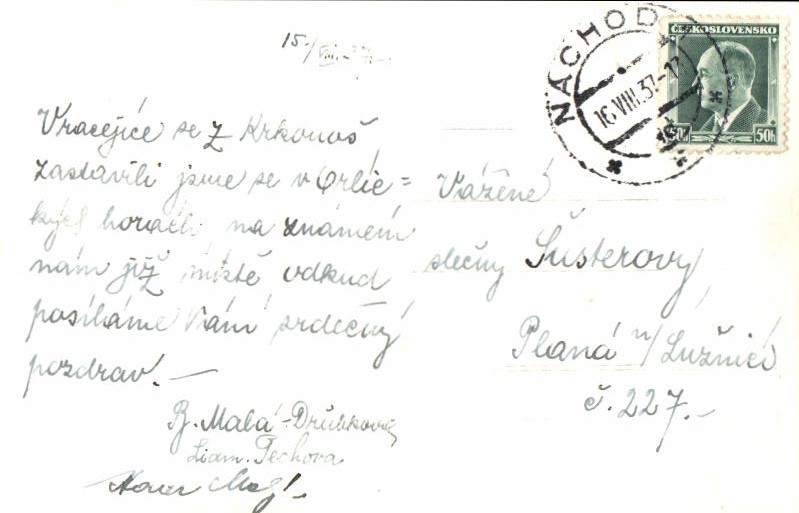 15./VIII.37.
Vracejíce se z Krkonoš
zastavili jsme se v Orlic=
kých horách, na známém
nám již místě odkud
posíláme Vám srdečný
pozdrav. —
B. Malá-Drubková
Pechova
NÁCHOD
16.VIII.37-17
ČESKOSLOVENSKO
50h 50h
Vážené
slečny Šusterovy,
Planá n/Lužnicí
č. 227.-